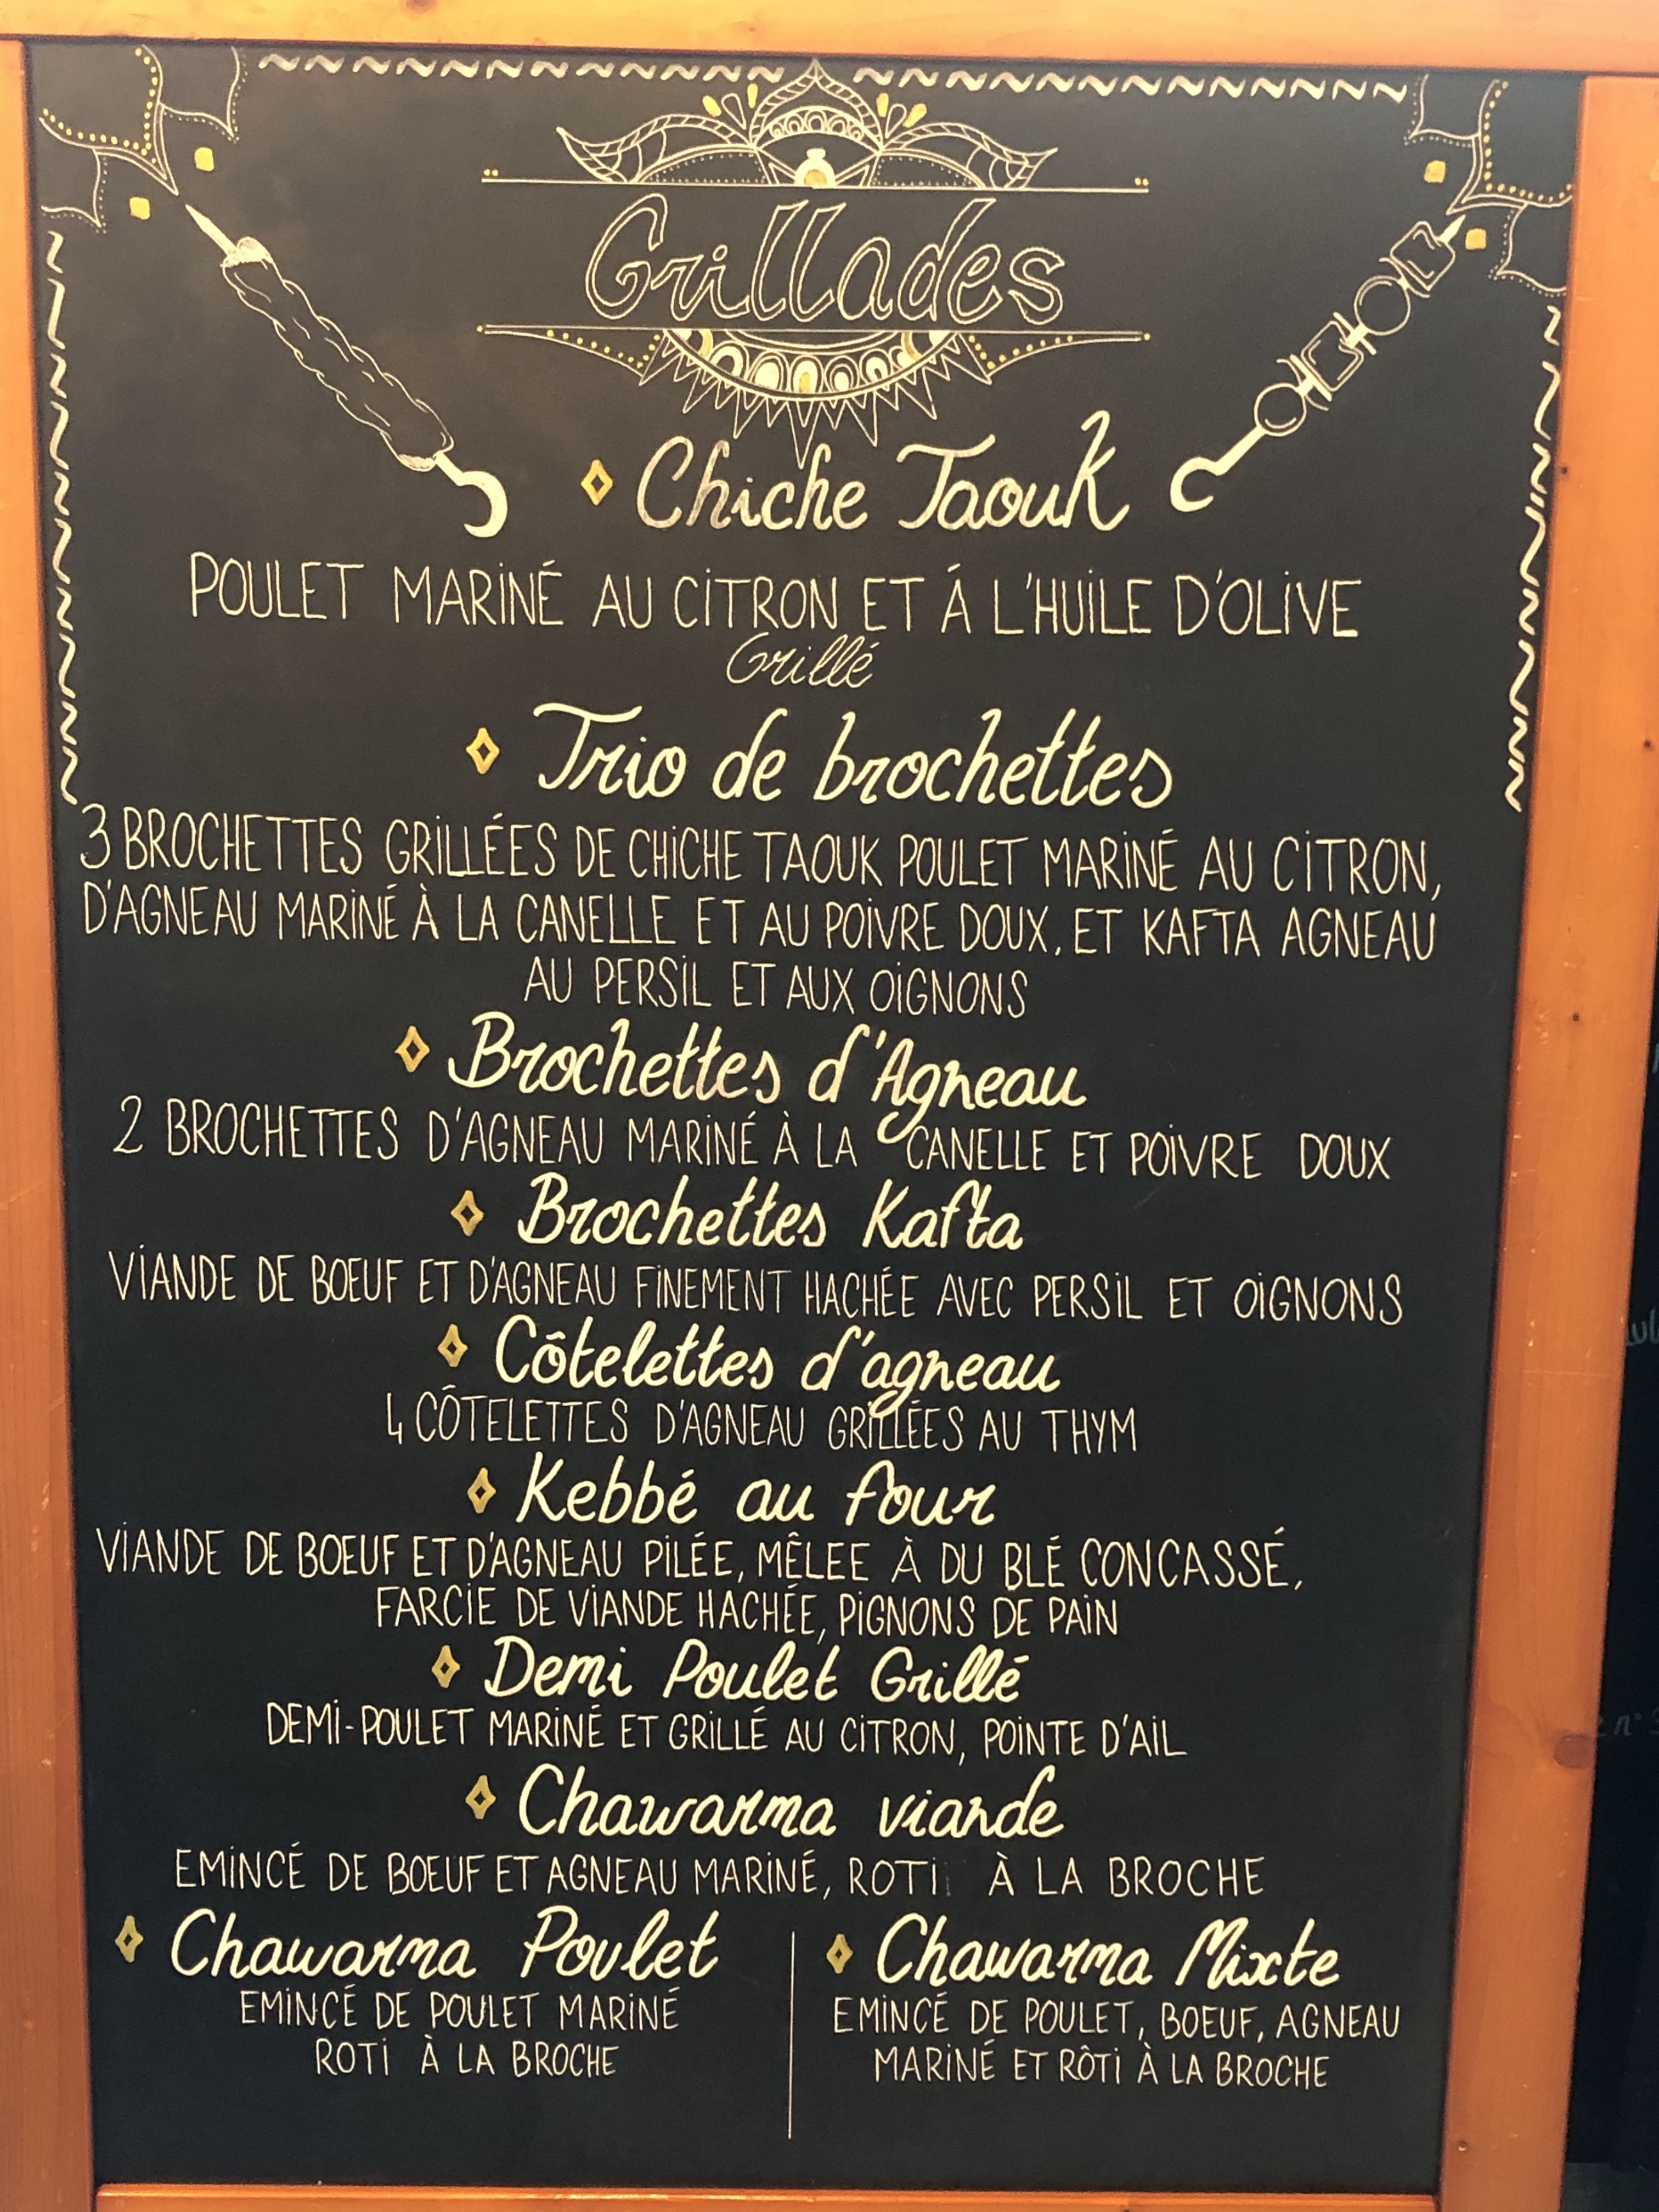 Grillades
Chiche Taouk
POULET MARINÉ AU CITRON ET Á L'HUILE D'OLIVE
Grillé
Trio de brochettes
3 BROCHETTES GRILLÉES DE CHICHE TAOUK POULET MARINÉ AU CITRON,
D'AGNEAU MARINÉ À LA CANELLE ET AU POIVRE DOUX, ET KAFTA AGNEAU
AU PERSIL ET AUX OIGNONS
Brochettes d'Agneau
2 BROCHETTES D'AGNEAU MARINÉ À LA CANELLE ET POIVRE DOUX
Brochettes Kafta
VIANDE DE BOEUF ET D'AGNEAU FINEMENT HACHÉE AVEC PERSIL ET OIGNONS
Côtelettes d'agneau
4 CÔTELETTES D'AGNEAU GRILLÉES AU THYM
Kebbé au four
VIANDE DE BOEUF ET D'AGNEAU PILÉE, MÊLEE À DU BLÉ CONCASSÉ,
FARCIE DE VIANDE HACHÉE, PIGNONS DE PAIN
Demi Poulet Grillé
DEMI-POULET MARINÉ ET GRILLÉ AU CITRON, POINTE D'AIL
Chawarma viande
EMINCÉ DE BOEUF ET AGNEAU MARINÉ, ROTI À LA BROCHE
Chawarma Poulet
EMINCÉ DE POULET MARINÉ
ROTI À LA BROCHE
Chawarma Mixte
EMINCÉ DE POULET, BOEUF, AGNEAU
MARINÉ ET RÔTI À LA BROCHE